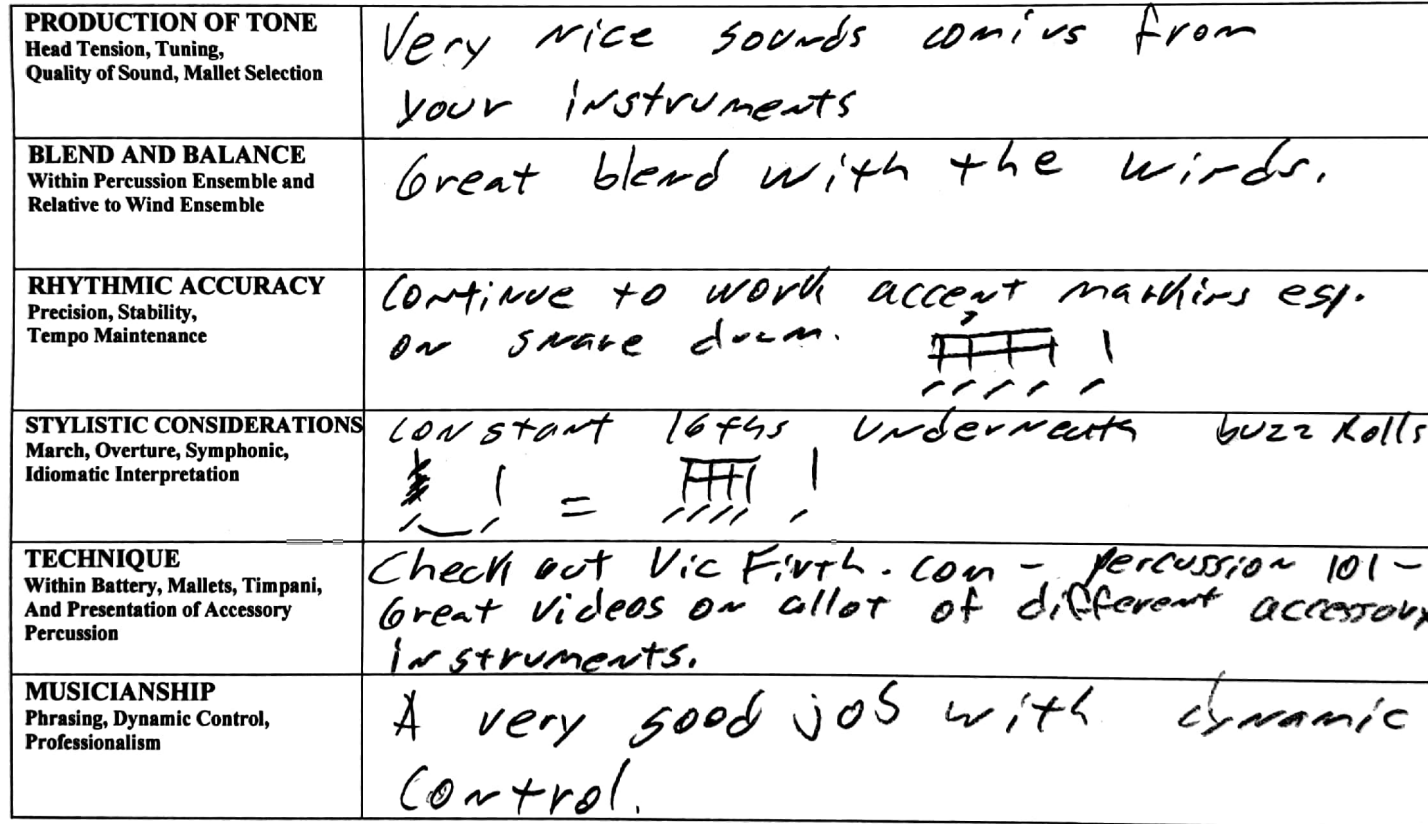 PRODUCTION OF TONE
Head Tension, Tuning,
Quality of Sound, Mallet Selection
Very nice sounds coming from
your instruments
BLEND AND BALANCE
Within Percussion Ensemble and
Relative to Wind Ensemble
Great blend with the winds.
RHYTHMIC ACCURACY
Precision, Stability,
Tempo Maintenance
Continue to work accent markings esp.
on snare drum.
STYLISTIC CONSIDERATIONS
March, Overture, Symphonic,
Idiomatic Interpretation
Constant 16ths underneath buzz Rolls
=
TECHNIQUE
Within Battery, Mallets, Timpani,
And Presentation of Accessory
Percussion
Check out Vic Firth.com - percussion 101 -
Great videos on allot of different accessory
instruments.
MUSICIANSHIP
Phrasing, Dynamic Control,
Professionalism
A very good job with dynamic
Control.